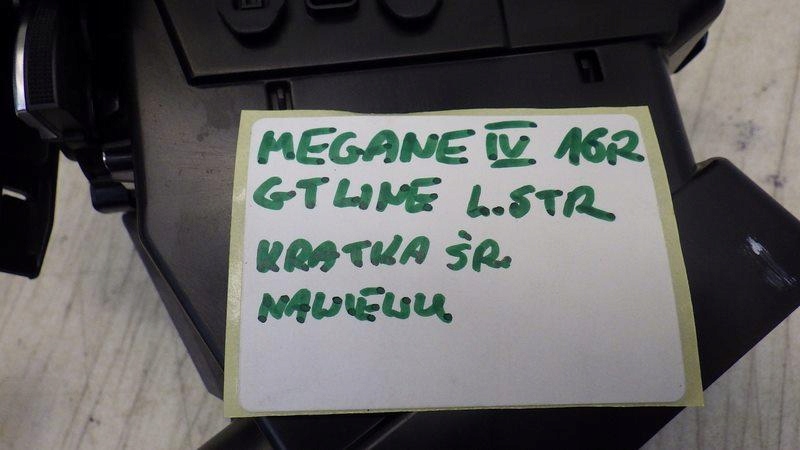 MEGANE IV 16R
GT LINE L.STR
KRATKA ŚR.
NAWIEWU